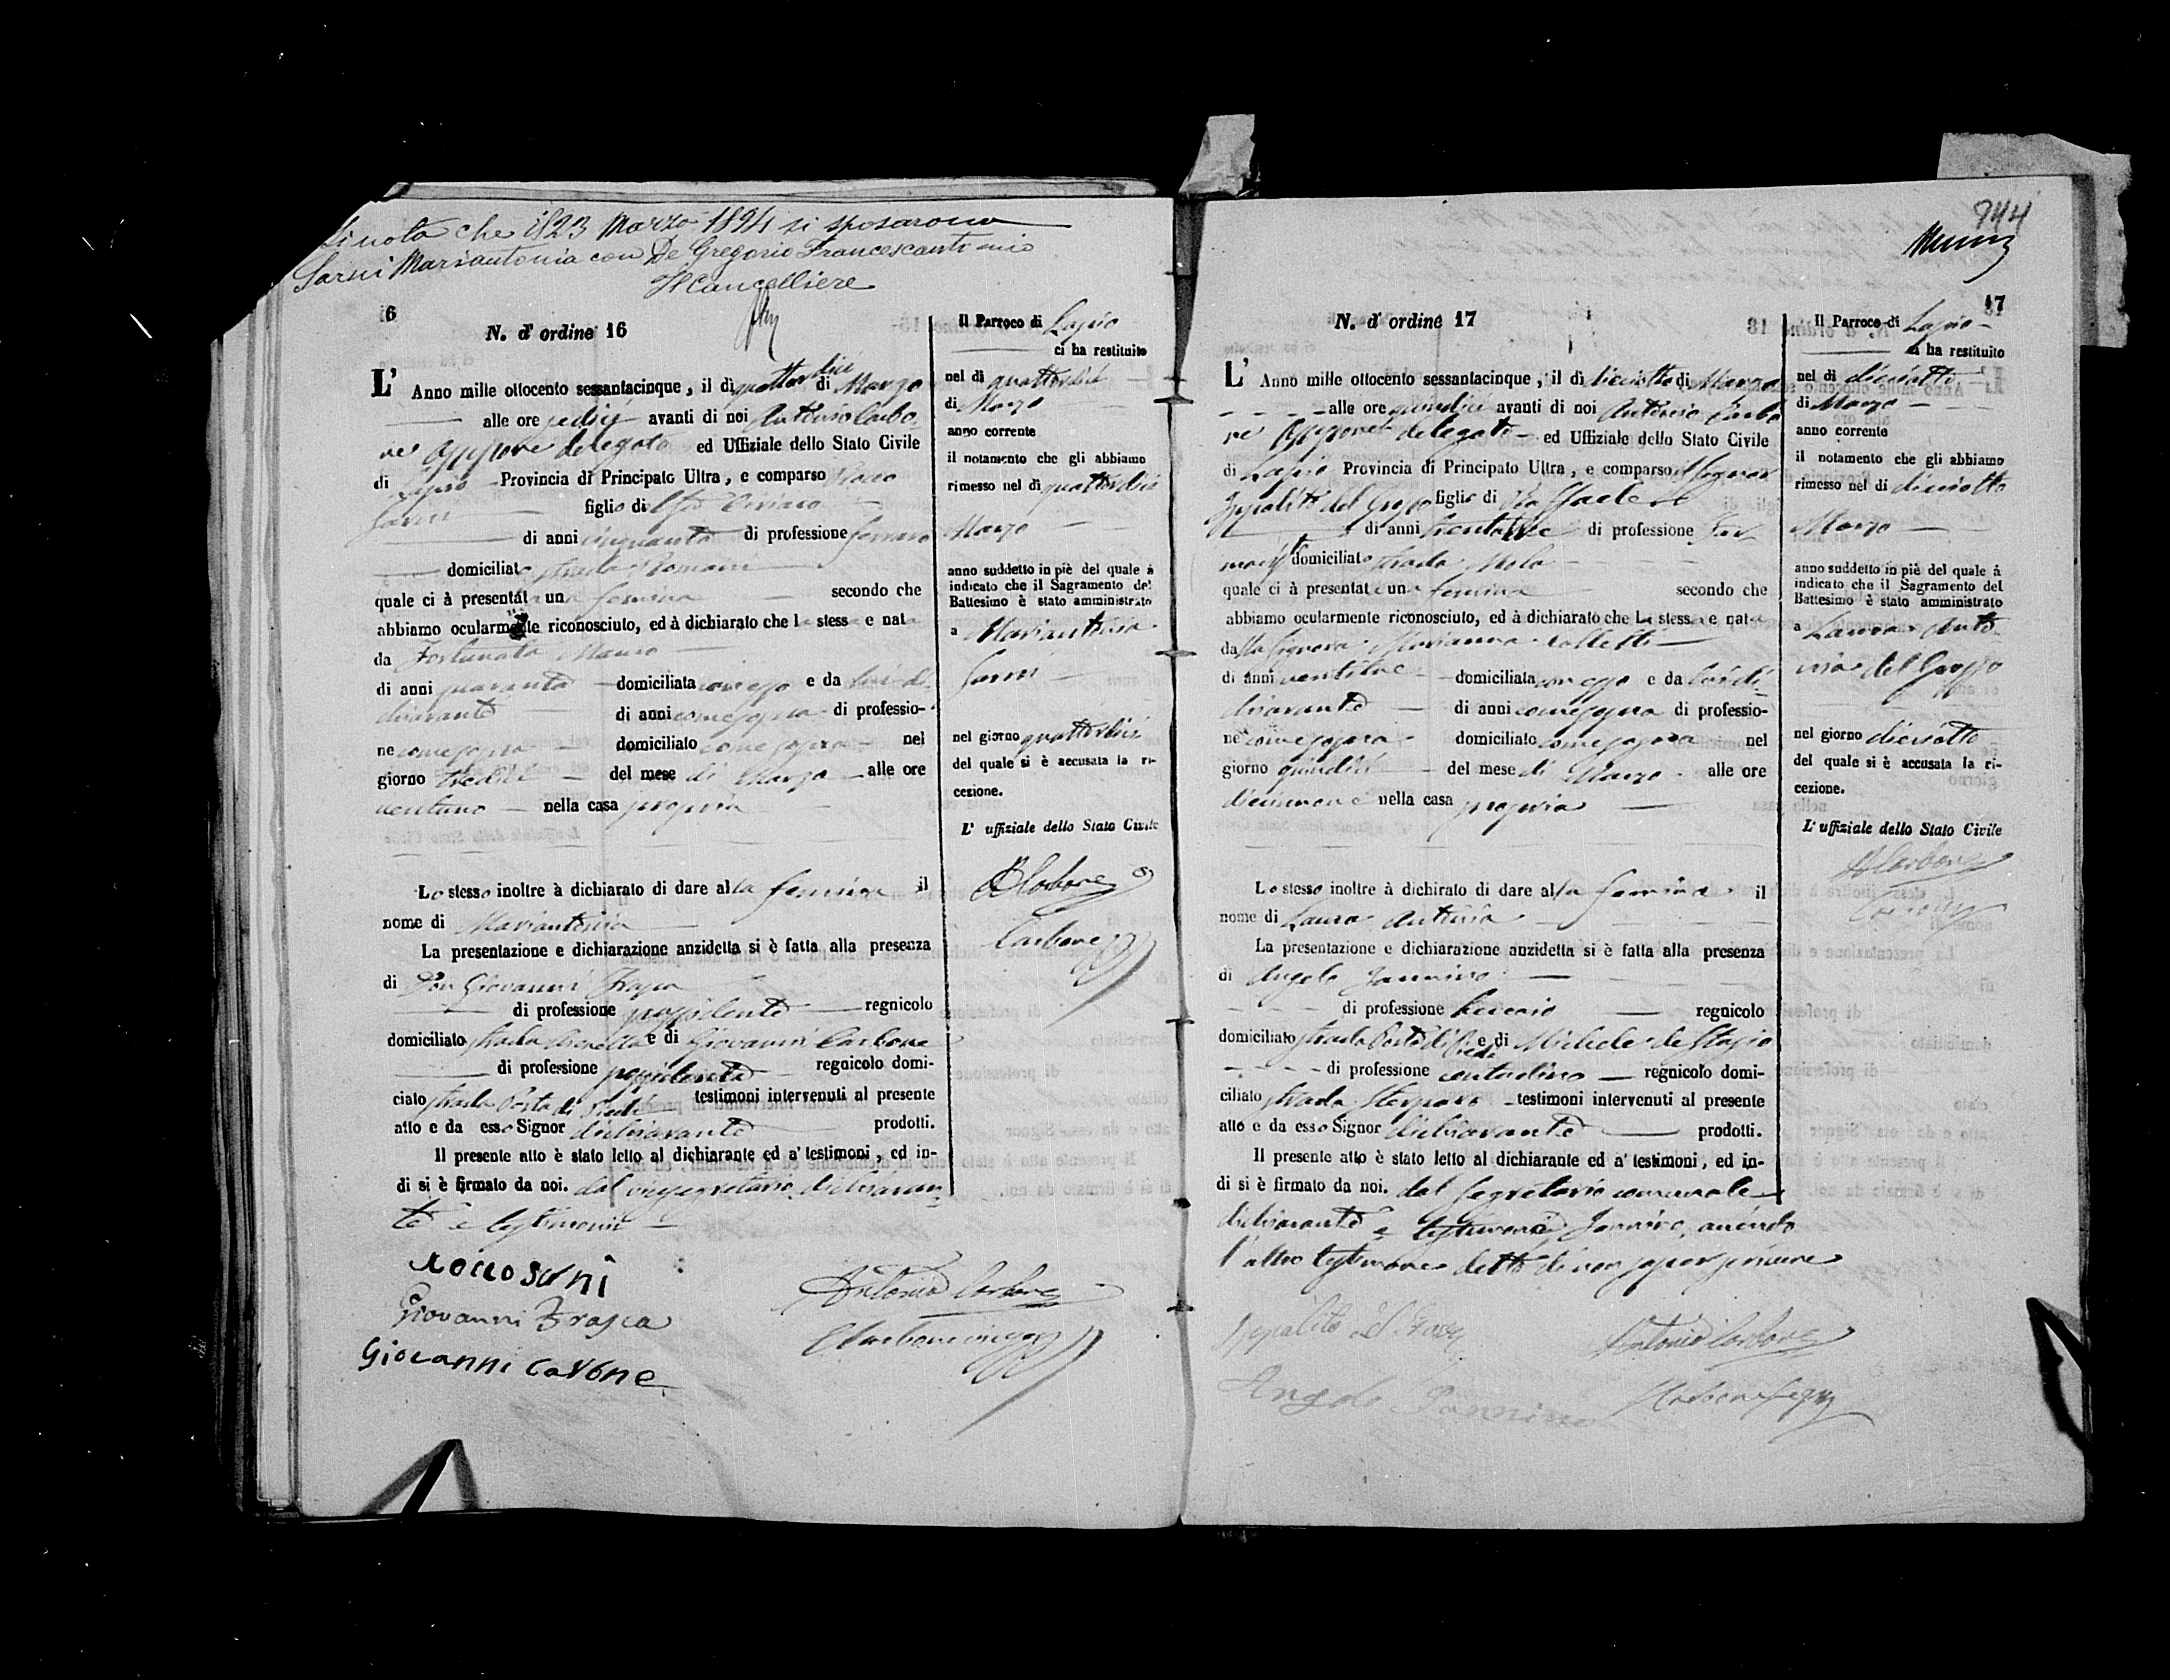 Si nota che il 23 Marzo 1894 si sposarono
Sarni Mariantonia con De Gregorio Francescantonio
Il Cancelliere
6
N. d' ordine 16
L' Anno mille ottocento sessantacinque, il dì quattordici di Marzo
alle ore sedici avanti di noi Antonio Carbo
ne Assessore delegato ed Uffiziale dello Stato Civile
di Lapio Provincia di Principato Ultra, e comparso Rocco
Sarni figlio di Ciriaco
di anni cinquanta di professione ferraro
domiciliato strada Romani
quale ci à presentat una femina secondo che
abbiamo ocularmente riconosciuto, ed à dichiarato che la stessa e nata
da Fortunata Mauro
di anni quaranta domiciliata con esso e da lui di
chiarante di anni come sopra di professio-
ne come sopra domiciliato come sopra nel
giorno tredici del mese di Marzo alle ore
ventuno nella casa propria
Lo stesso inoltre à dichiarato di dare alla femina il
nome di Mariantonia
La presentazione e dichiarazione anzidetta si è fatta alla presenza
di Don Giovanni Frasca
di professione possidente regnicolo
domiciliato strada e di Giovanni Carbone
di professione possidente regnicolo domi-
ciato strada Porta di Piedi testimoni intervenuti al presente
atto e da esso Signor dichiarante prodotti.
Il presente atto è stato letto al dichiarante ed a' testimoni, ed in-
di si è firmato da noi. dal vicesegretario dichiaran
te e testimoni
Rocco Sarni
Giovanni Frasca
Giovanni Carbone
Antonio Carbone
Il Parroco di Lapio
ci ha restituito
nel dì quattordici
di Marzo
anno corrente
il notamento che gli abbiamo
rimesso nel dì quattordici
Marzo
anno suddetto in piè del quale à
indicato che il Sagramento del
Battesimo è stato amministrato
a Mariantonia
Sarni
nel giorno quattordici
del quale si è accusata la ri-
cezione.
L' uffiziale dello Stato Civile
A Carbone
Carbone
944
17
N. d' ordine 17
L' Anno mille ottocento sessantacinque, il dì dieciotto di Marzo
alle ore quindici avanti di noi Antonio Carbo
ne Assessore delegato ed Uffiziale dello Stato Civile
di Lapio Provincia di Principato Ultra, e comparso Signor
Ippolito del Grosso figlio di Raffaele
di anni trentatre di professione Far
macista domiciliato strada Mola
quale ci à presentato una femina secondo che
abbiamo ocularmente riconosciuto, ed à dichiarato che La stessa e nata
dalla Signora Marianna Colletti
di anni ventitre domiciliata con esso e da lui di
chiarante di anni come sopra di professio-
ne come sopra domiciliato come sopra nel
giorno quindici del mese di Marzo alle ore
diecinove nella casa propria
Lo stesso inoltre à dichirato di dare alla femina il
nome di Laura Antonia
La presentazione e dichiarazione anzidetta si è fatta alla presenza
di Angelo Jannino
di professione regnicolo
domiciliato strada Porta di Piedi e di Michele de Stasio
di professione contadino regnicolo domi-
ciliato strada testimoni intervenuti al presente
atto e da esso Signor dichiarante prodotti.
Il presente atto è stato letto al dichiarante ed a' testimoni, ed in-
di si è firmato da noi. dal segretario comunale
dichiarante e testimone Jannino, avendo
l'altro testimone detto di non saper scrivere
Ippolito del Grosso
Angelo Jannino
Antonio Carbone
Il Parroco di Lapio
ci ha restituito
nel dì dieciotto
di Marzo
anno corrente
il notamento che gli abbiamo
rimesso nel dì dieciotto
Marzo
anno suddetto in piè del quale à
indicato che il Sagramento del
Battesimo è stato amministrato
a Laura Anto
nia del Grosso
nel giorno dieciotto
del quale si è accusata la ri-
cezione.
L' uffiziale dello Stato Civile
A Carbone